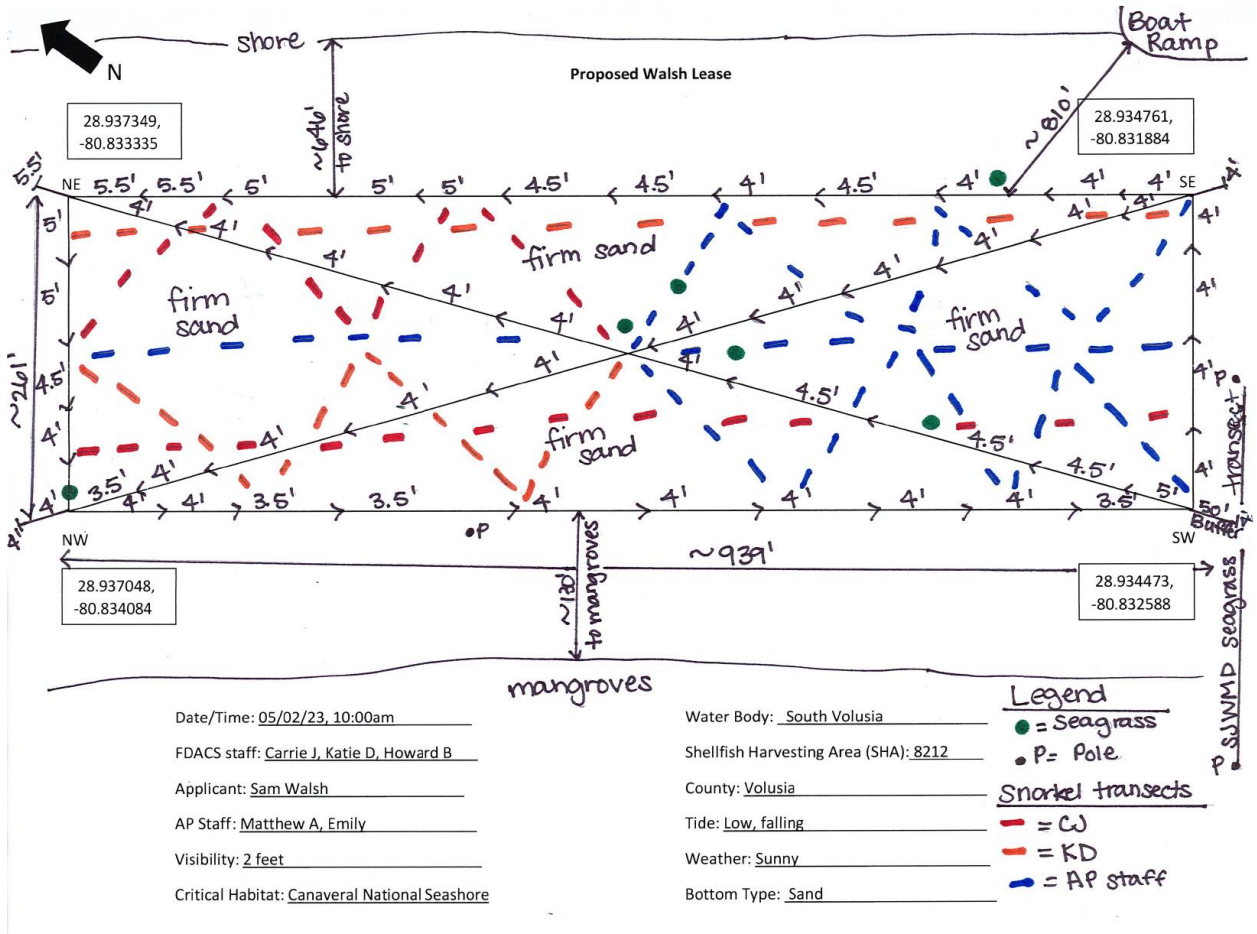 shore
Boat
Ramp
N
Proposed Walsh Lease
28.937349,
-80.833335
~646'
to shore
~810'
28.934761,
-80.831884
5.5'
NE
5.5'
5.5'
5'
5'
5'
4.5'
4.5'
4'
4.5'
4'
4'
4'
SE
4'
5'
4'
4'
4'
4'
4'
4'
firm sand
4'
4'
4'
5'
firm
sand
4'
4'
4'
4'
firm
sand
4'
4'
4'
~261'
4.5'
4'
4.5'
4'P
4'
4'
4'
firm
sand
4.5'
4.5'
4'
transect
4'
3.5'
4'
4'
3.5'
3.5'
4'
4'
4'
4'
4'
3.5'
5'
50'
Buffer
4'
4'
NW
P
SW
~939'
28.937048,
-80.834084
~130'
to mangroves
28.934473,
-80.832588
SJWMD seagrass
P
mangroves
Date/Time: 05/02/23, 10:00am
FDACS staff: Carrie J, Katie D, Howard B
Applicant: Sam Walsh
AP Staff: Matthew A, Emily
Visibility: 2 feet
Critical Habitat: Canaveral National Seashore
Water Body: South Volusia
Shellfish Harvesting Area (SHA): 8212
County: Volusia
Tide: Low, falling
Weather: Sunny
Bottom Type: Sand
Legend
= Seagrass
P= Pole
Snorkel transects
= CJ
= KD
= AP staff